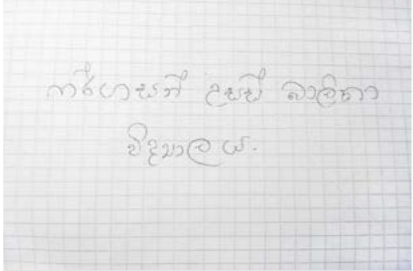 ෆර්ගසන් උසස් බාලිකා
විද්‍යාලය.